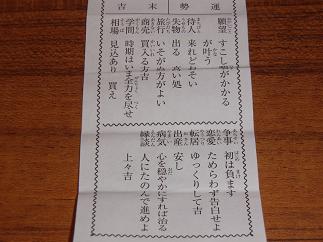 運勢 末吉
願望 すこし時がかかるが叶う
待人 来れどおそい
失物 出る 高い処
旅行 いそがぬ方がよい
商売 買入る方吉
学問 時期はいま全力を尽せ
相場 見込あり 買え
争事 初は負ます
恋愛 ためらわず告白せよ
転居 ゆっくりして吉
出産 安し
病気 心を穏やかにすれば治る
縁談 人にたのんで進めよ 上々吉